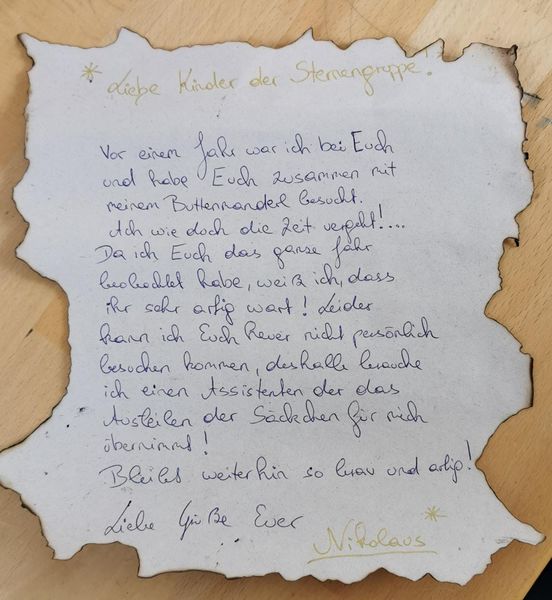 * Liebe Kinder der Sternengruppe!
Vor einem Jahr war ich bei Euch
und habe Euch zusammen mit
meinem Buttenmanderl besucht.
Ach wie doch die Zeit vergeht!...
Da ich Euch das ganze Jahr
beobachtet habe, weiß ich, dass
ihr sehr artig wart! Leider
kann ich Euch heuer nicht persönlich
besuchen kommen, deshalb brauche
ich einen Assistenten der das
Austeilen der Säckchen für mich
übernimmt!
Bleibt weiterhin so brav und artig!
Liebe Grüße Euer
Nikolaus *